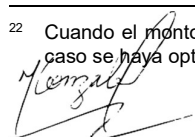 22 Cuando el monto
caso se haya opt